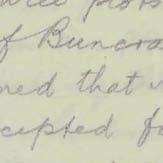 of Buncra
ned that
cepted fo